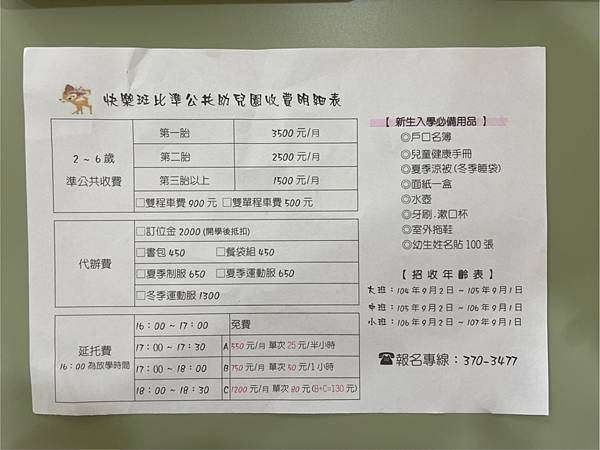 快樂班比準公共幼兒園收費明細表
2 ~ 6 歲
準公共收費
第一胎 3500 元/月
第二胎 2500 元/月
第三胎以上 1500 元/月
□雙程車費 900 元 □雙單程車費 500 元
代辦費
□訂位金 2000 (開學後抵扣)
□書包 450 □餐袋組 450
□夏季制服 650 □夏季運動服 650
□冬季運動服 1300
延托費
16：00 為放學時間
16：00 ~ 17：00 免費
17：00 ~ 17：30 A 550 元/月 單次 25 元/半小時
17：00 ~ 18：00 B 750 元/月 單次 50 元/1 小時
18：00 ~ 18：30 C 1200 元/月 單次 80 元(B+C=130 元)
【 新生入學必備用品 】
◎戶口名簿
◎兒童健康手冊
◎夏季涼被(冬季睡袋)
◎面紙一盒
◎水壺
◎牙刷.漱口杯
◎室外拖鞋
◎幼生姓名貼 100 張
【 招 收 年 齡 表 】
大班：104 年 9 月 2 日 ~ 105 年 9 月 1 日
中班：105 年 9 月 2 日 ~ 106 年 9 月 1 日
小班：106 年 9 月 2 日 ~ 107 年 9 月 1 日
☎報名專線：370-3477